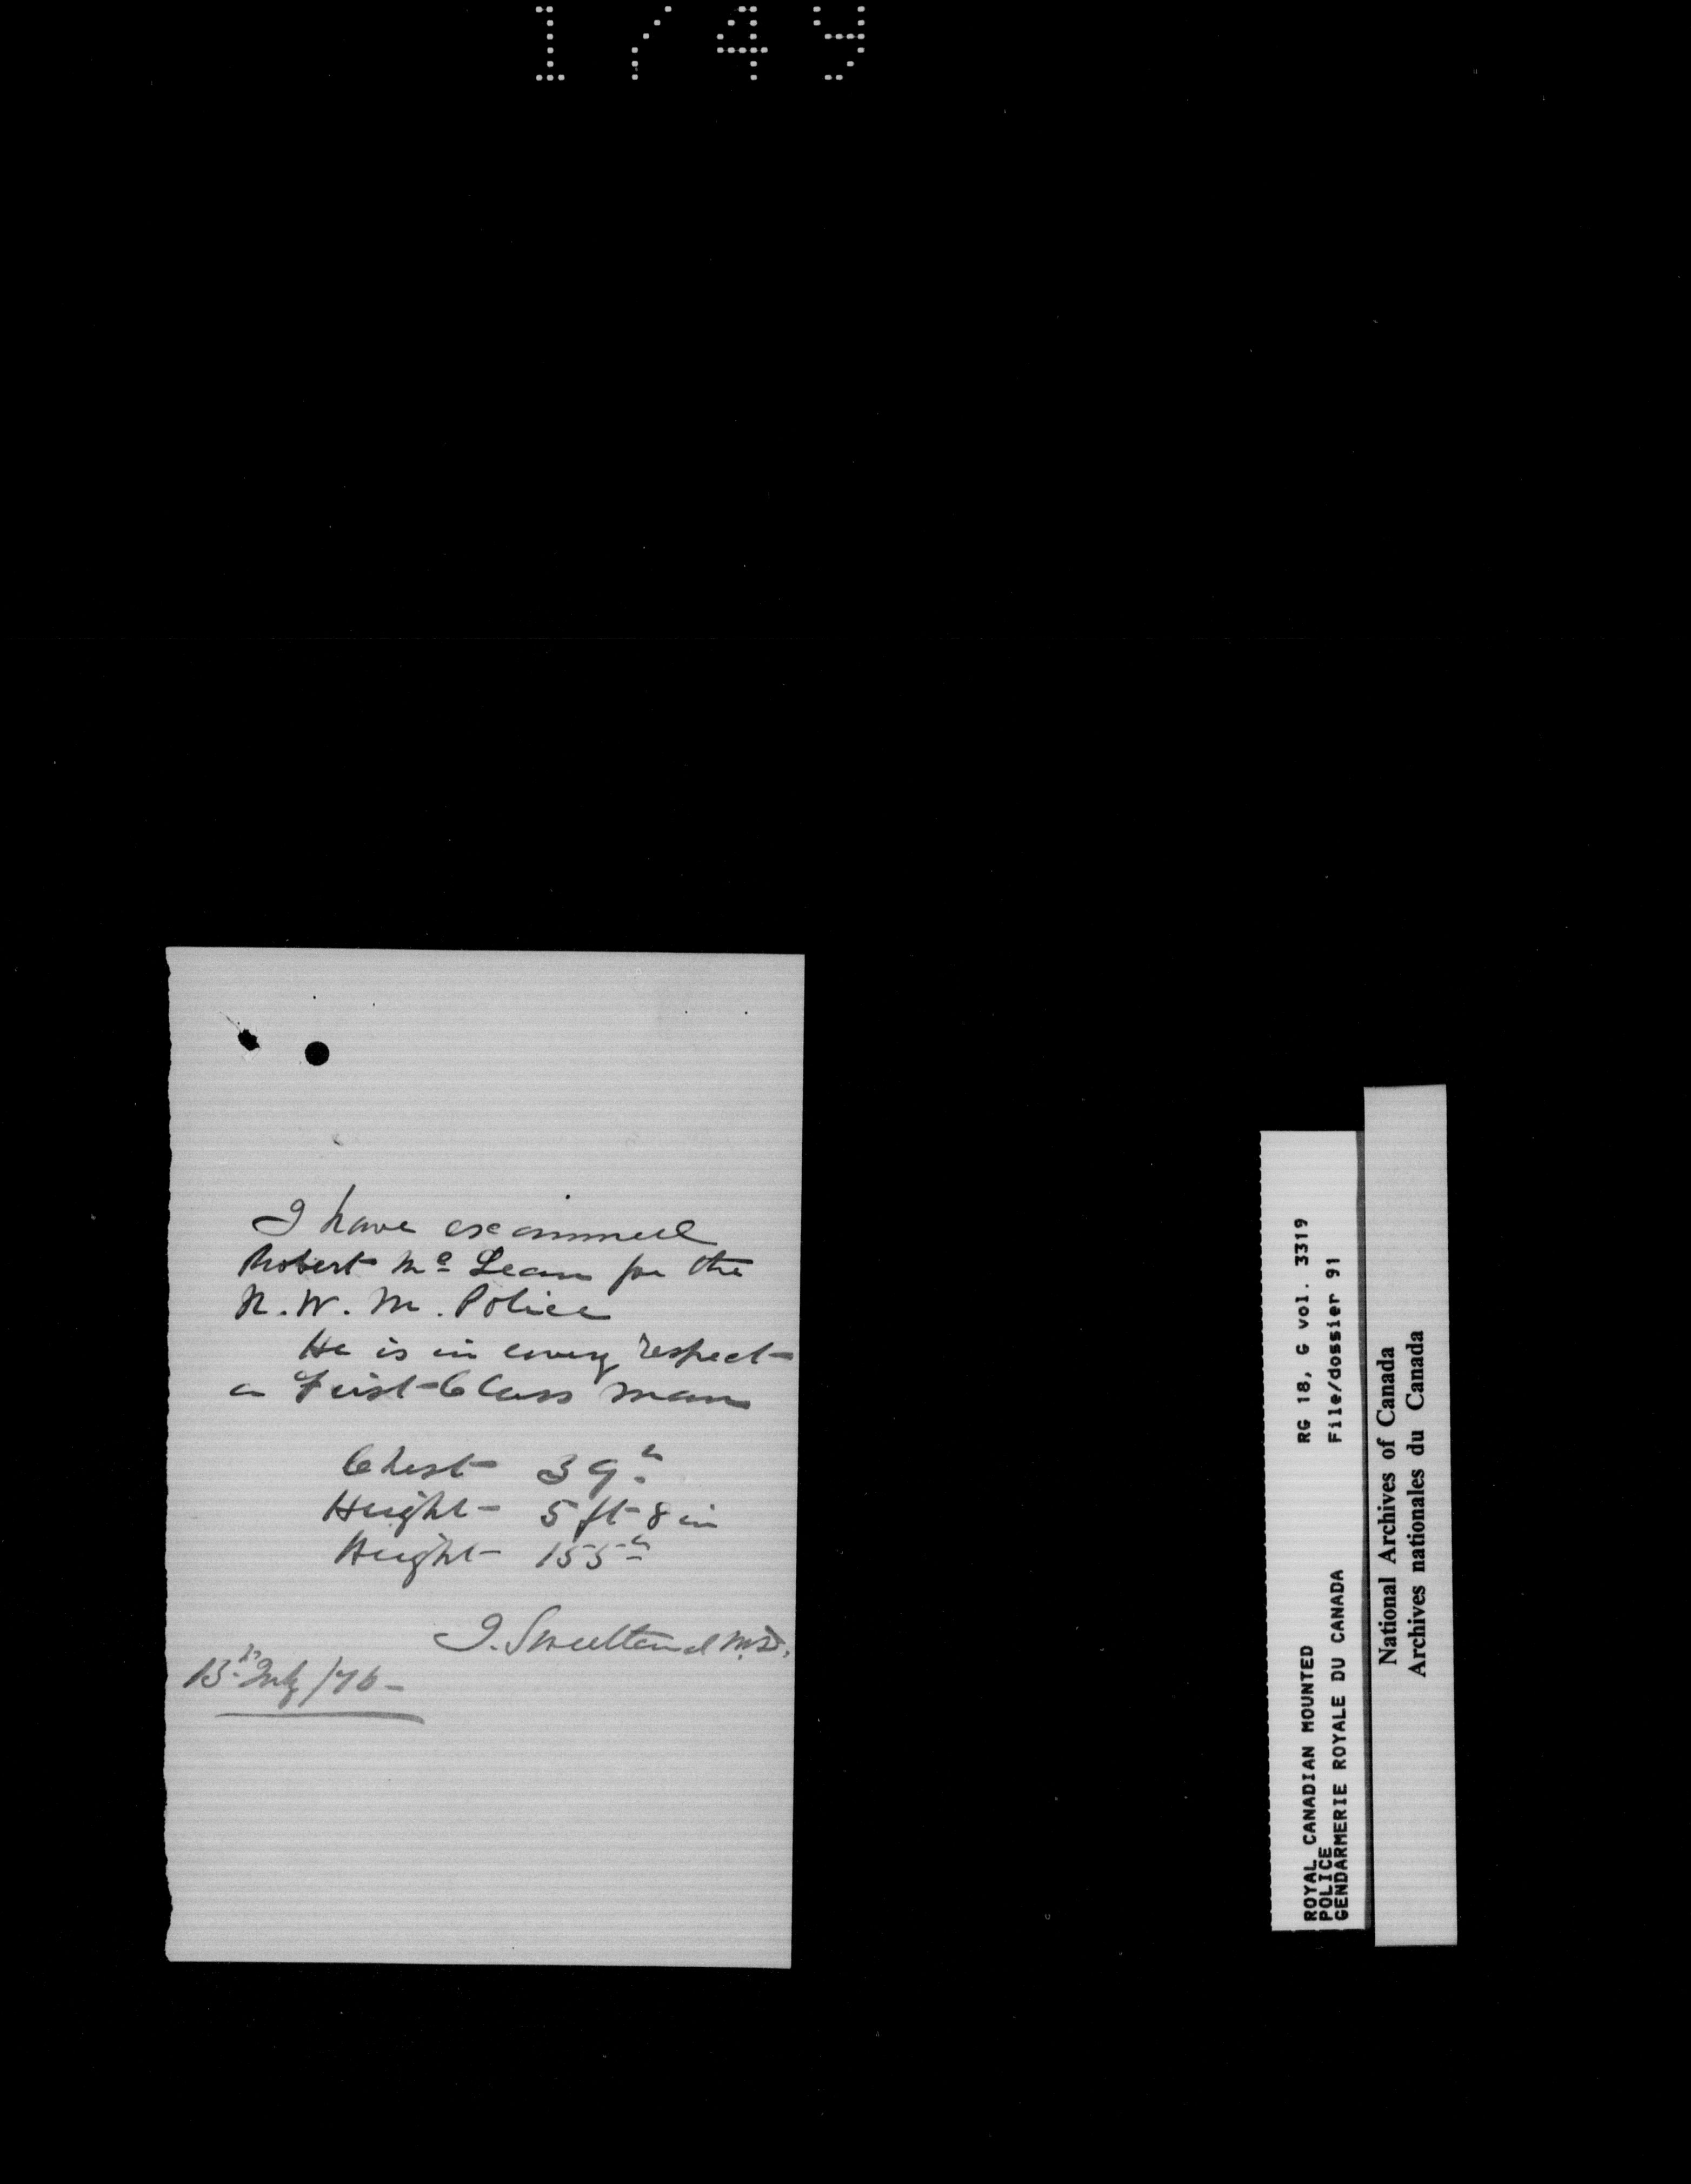 1749
I have examined
Robert Mc Lean for the
N. W. M. Police
He is in every respect
a First-Class man
Chest 39 in
Height 5 ft 8 in
Weight 155 lb
J. Sweetland M.D.
13th July /76
ROYAL CANADIAN MOUNTED RG 18, G vol. 3319
POLICE
GENDARMERIE ROYALE DU CANADA File/dossier 91
National Archives of Canada
Archives nationales du Canada